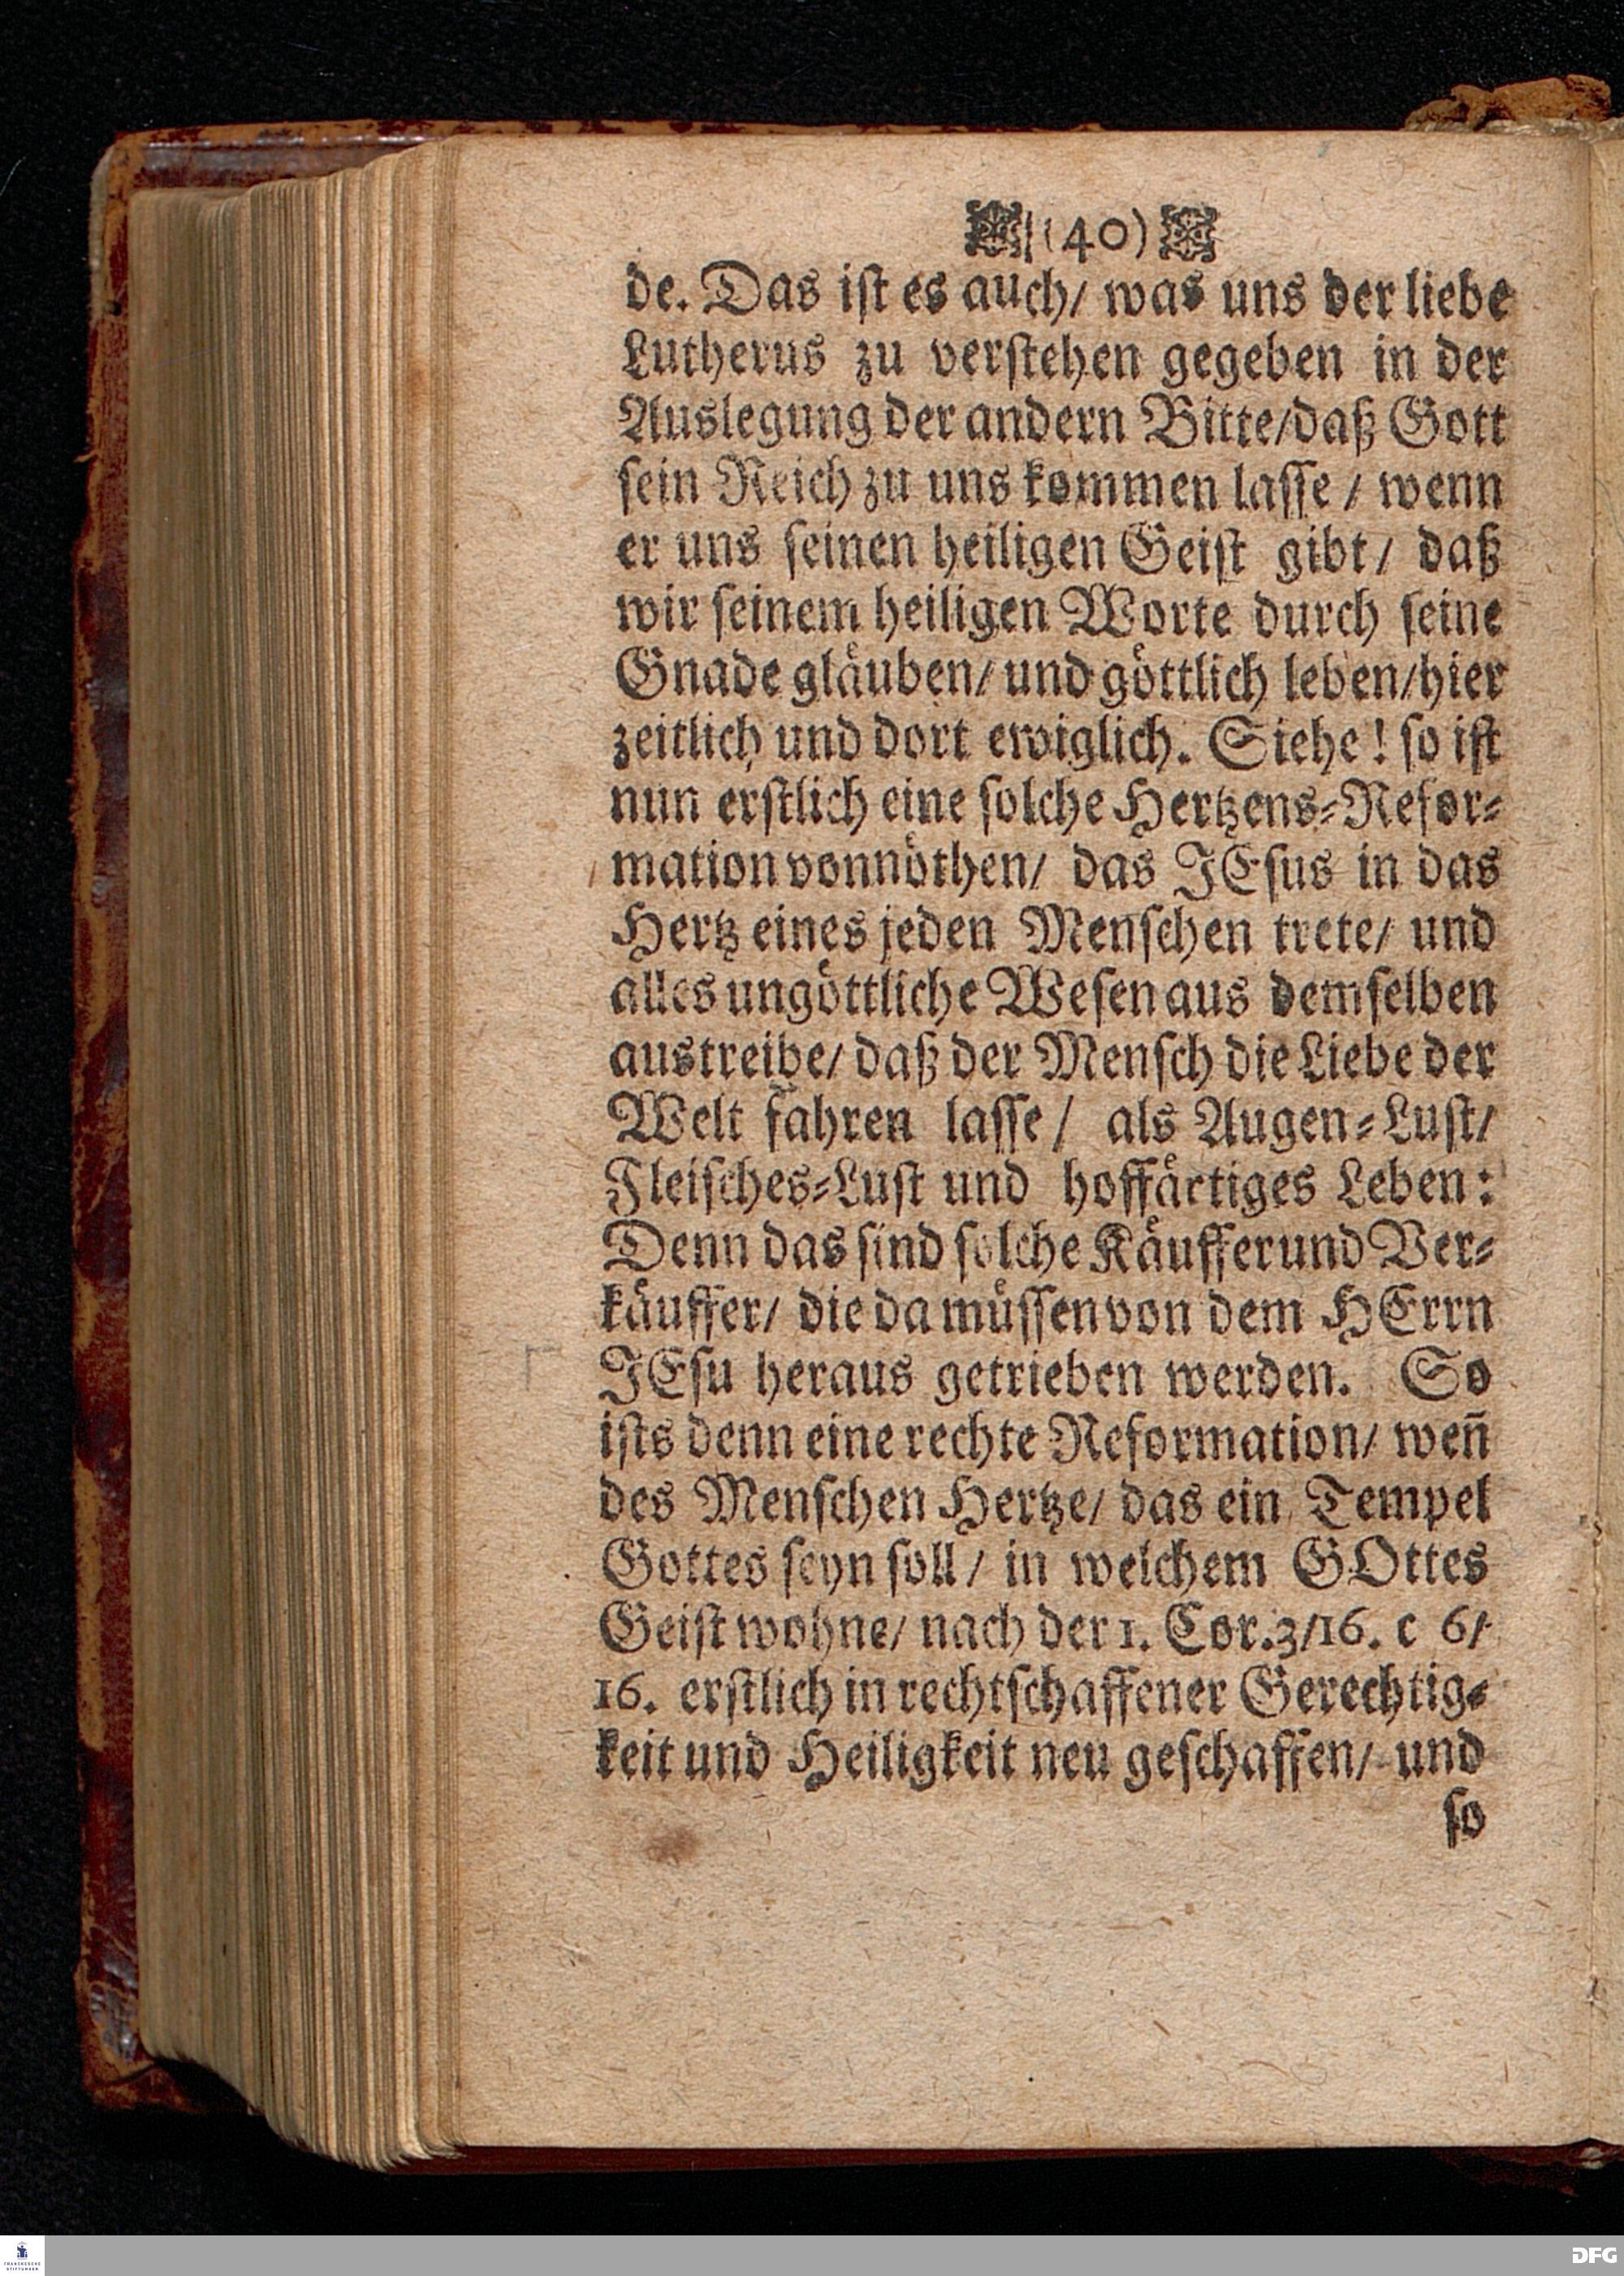 (40)
de. Das ist es auch/ was uns der liebe
Lutherus zu verstehen gegeben in der
Auslegung der andern Bitte/daß Gott
sein Reich zu uns kommen lasse / wenn
er uns seinen heiligen Geist gibt/ daß
wir seinem heiligen Worte durch seine
Gnade gläuben/ und göttlich leben/hier
zeitlich und dort ewiglich. Siehe! so ist
nun erstlich eine solche Hertzens-Refor-
mation vonnöthen/ das JEsus in das
Hertz eines jeden Menschen trete/ und
alles ungöttliche Wesen aus demselben
austreibe/ daß der Mensch die Liebe der
Welt fahren lasse / als Augen-Lust/
Fleisches-Lust und hoffärtiges Leben:
Denn das sind solche Käuffer und Ver-
käuffer/ die da müssen von dem HErrn
JEsu heraus getrieben werden. So
ists denn eine rechte Reformation/ weñ
des Menschen Hertze/ das ein Tempel
Gottes seyn soll / in welchem GOttes
Geist wohne/ nach der 1. Cor.3/16. c 6/
16. erstlich in rechtschaffener Gerechtig-
keit und Heiligkeit neu geschaffen/ und
so
FRANCKESCHE
STIFTUNGEN
DFG